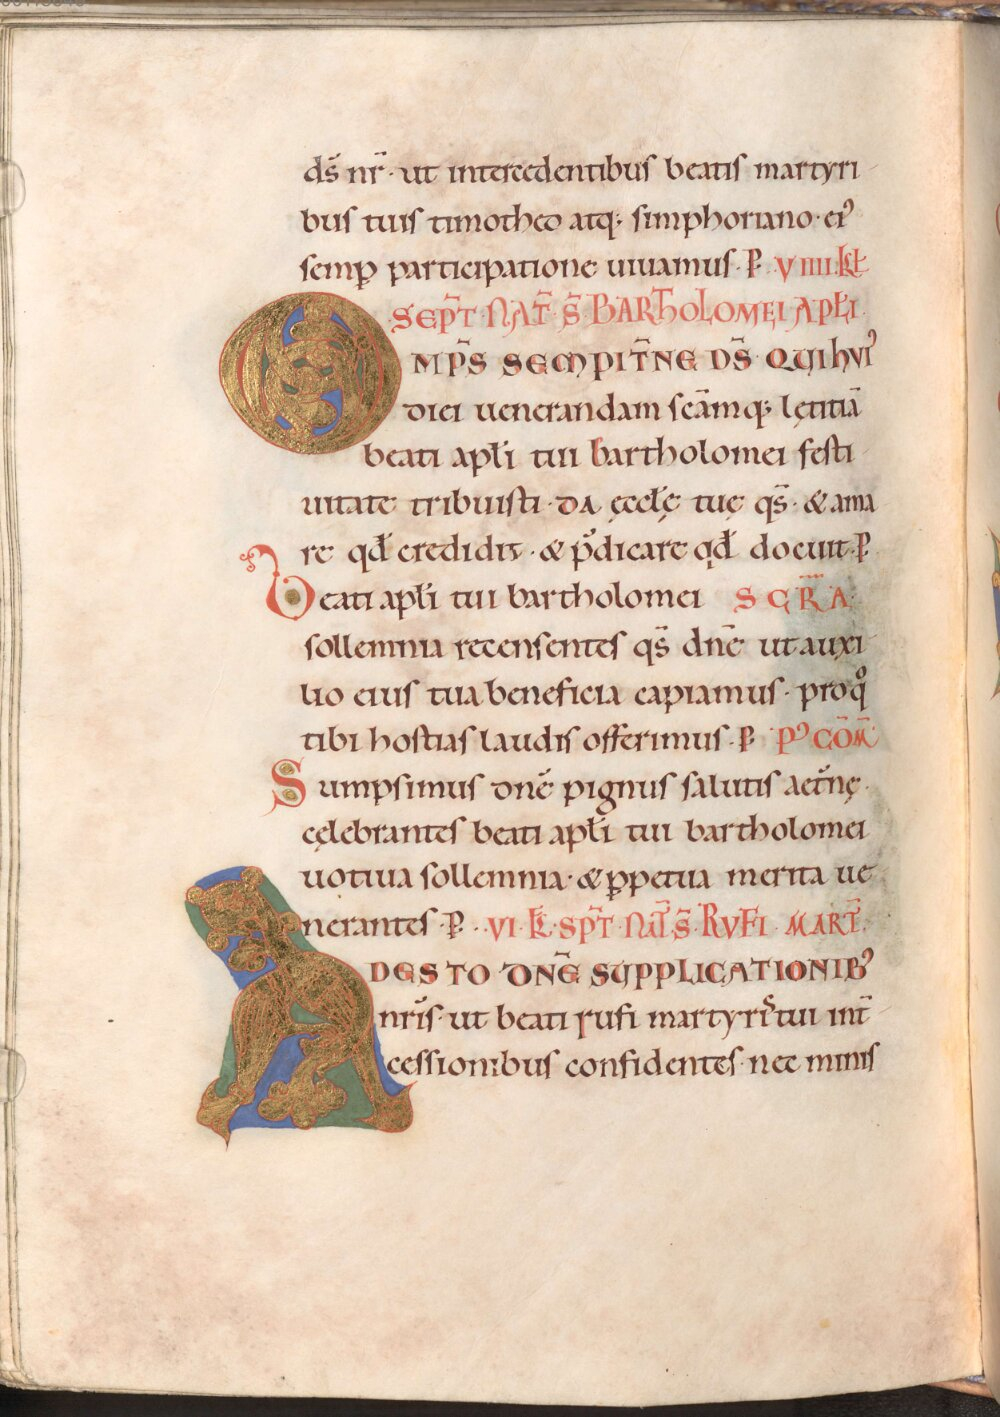 ds̄ nr̄· ut intercedentibus beatis martyri
bus tuis timotheo atq; simphoriano· ei᾿
semꝑ participatione uiuamus·P· VIIII·KL̄
SEPT̄·NAT̄·S̄·BARTHOLOMEI APLI·
OMPS̄ SEMPIT̄NE DS̄ QUI HUI᾿
diei uenerandam sc̄amq; lętitiā
beati apłi tui bartholomei festi
uitate tribuisti· da ęcclę tuę qs̄· & ama
re qđ credidit· & p̄dicare qđ docuit·P
Beati apłi tui bartholomei SECR̄A·
sollemnia recensentes qs̄ dn̄e ut auxi
lio eius tua beneficia capiamus· pro qͦ
tibi hostias laudis offerimus·P· P᾿ COM̄
Sumpsimus dn̄e pignus salutis aet̄nę·
cęlebrantes beati apłi tui bartholomei
uotiua sollemnia· & ꝑpetua merita ue
nerantes·P· VI·KL̄·SPT̄·NAT̄·S̄·RUFI MART̄·
ADESTO DN̄E SUPPLICATIONIB᾿
nr̄is· ut beati rufi martyris tui int̄
cessionibus confidentes· nec minis